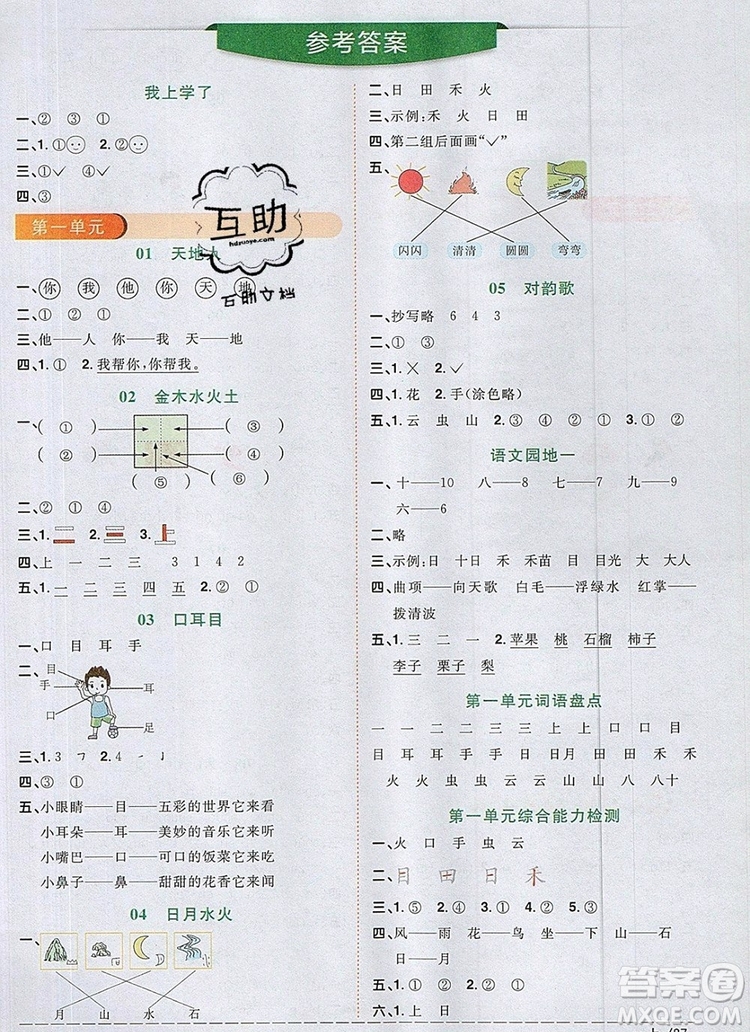 参考答案
我上学了
一、② ③ ①
二、①
三、1.①② 2.①
四、③
第一单元
01 天地人
一、你 我 他 你 天 地
二、① ② ①
三、他——人 你——我 天——地
四、1.① 2.我帮你,你帮我。
02 金木水火土
一、(①) (③)
(②) (④)
(⑤)
二、② ④
三、1. 2. 3.上
四、上 一 二 三 3 1 4 2
五、1. 一 二 三 四 五 2.① ②
03 口耳目
一、口 目 耳 手
二、目
手 耳
口 足
四、③ ①
五、小眼睛——目——五彩的世界它来看
小耳朵——耳——美妙的音乐它来听
小嘴巴——口——可口的饭菜它来尝
小鼻子——鼻——甜甜的花香它来闻
04 日月水火
一、
月 山 水 石
二、日 田 禾 火
三、示例:禾 火 日 田
四、第二组后面画“✓”
五、
闪闪 清清 圆圆 弯弯
05 对韵歌
一、抄写略 6 4 3
二、① ③
三、1.✕ 2.✓
四、1.花 2.手(涂色略)
五、1.云 虫 山 2.① ③ ② ① ①
语文园地一
一、十——10 八——8 七——7 九——9
六——6
二、略
三、示例:日 十日 禾 禾苗 目 目光 大 大人
四、曲项——向天歌 白毛——浮绿水 红掌——
拨清波
五、1.三 二 一 2.苹果 桃 石榴 柿子
李子 栗子 梨
第一单元词语盘点
一 一 二 二 三 三 上 上 口 口 目
目 耳 耳 手 手 日 日 田 田 禾 禾
火 火 虫 虫 云 云 山 山 八 八 十
第一单元综合能力检测
一、火 口 手 虫 云
二、目 田 日 禾
三、1.⑤ 2.④ 3.① 4.② 5.③
四、风——雨 花——鸟 坐——站 山——石
日——月
五、1.① 2.① 3.① 4.②
六、1.上 日
互助
hdzuoye.com
互助文档
答案圈
MXQE.COM